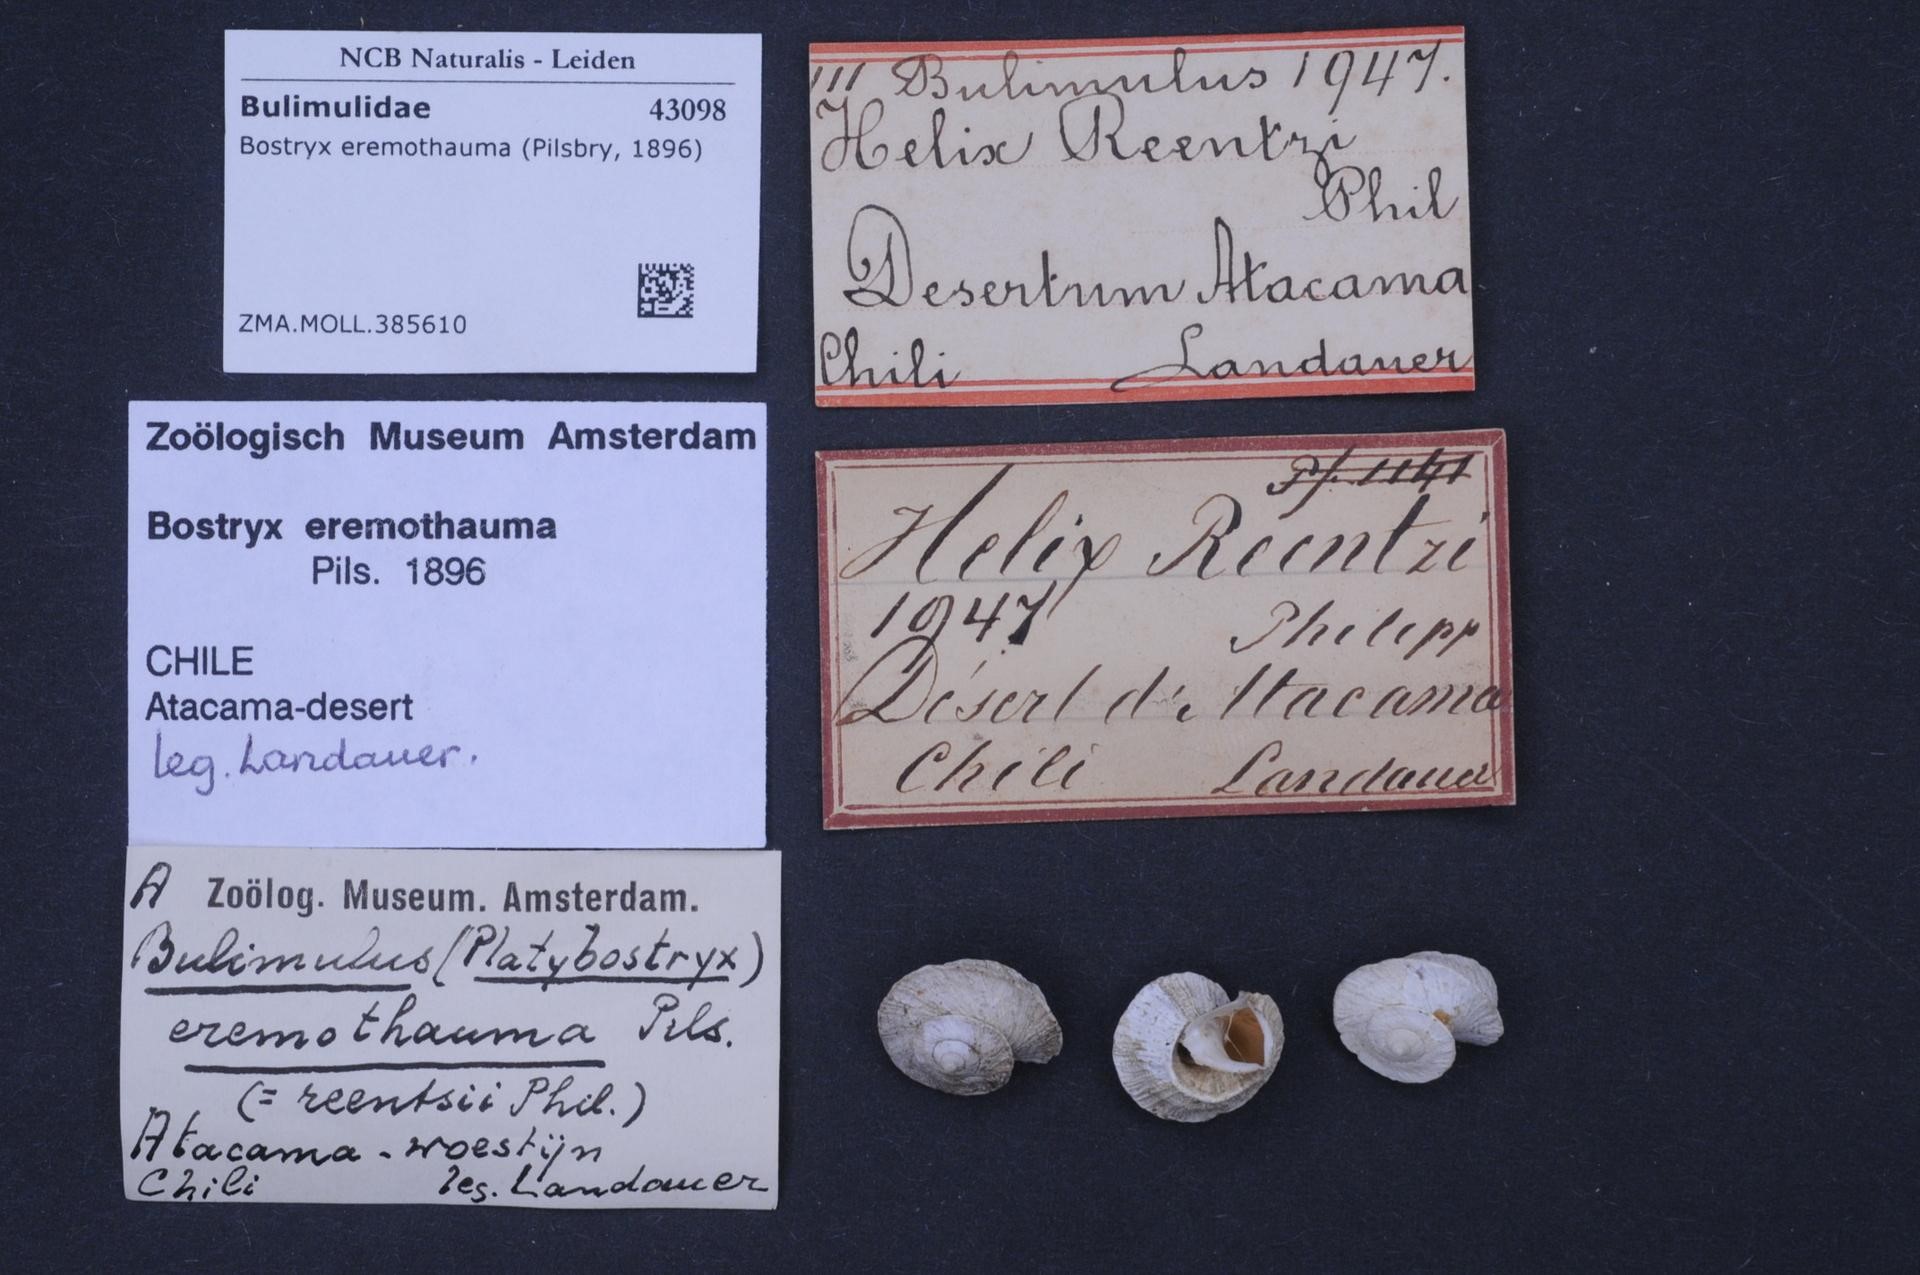 NCB Naturalis - Leiden
Bulimulidae 43098
Bostryx eremothauma (Pilsbry, 1896)
ZMA.MOLL.385610
Zoölogisch Museum Amsterdam
Bostryx eremothauma
Pils. 1896
CHILE
Atacama-desert
leg. Landauer.
A Zoölog. Museum. Amsterdam.
Bulimulus (Platybostryx)
eremothauma Pils.
(= reentsii Phil.)
Atacama-woestijn
Chili leg. Landauer
111 Bulimulus 1947.
Helix Reentzi
Phil
Desertum Atacama
Chili Landauer
Pf. 1141
Helix Reentzi
1947 Philipp
Désert d'Atacama
Chili Landauer